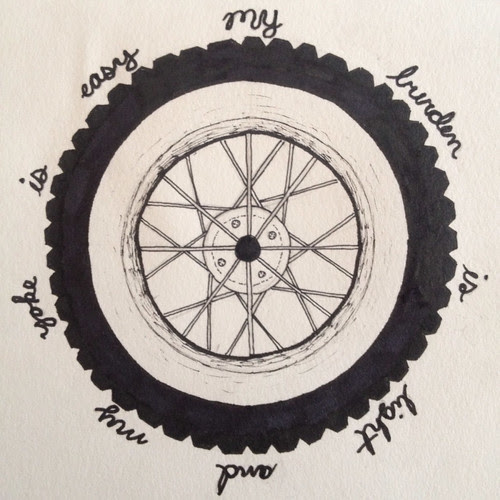 my burden is light and my yoke is easy